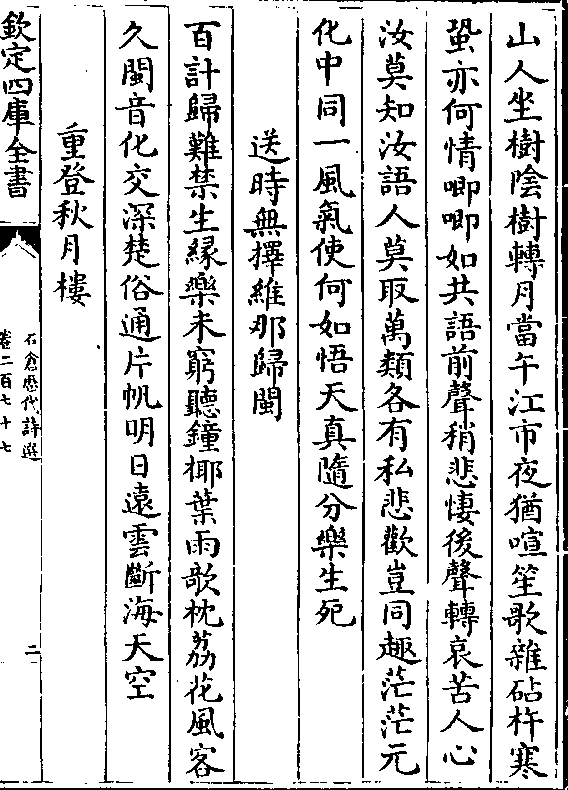 山人坐樹陰樹轉月當午江市夜猶喧笙歌雜砧杵寒
蛩亦何情唧唧如共語前聲稍悲悽後聲轉哀苦人心
汝莫知汝語人莫取萬類各有私悲歡豈同趣茫茫元
化中同一風氣使何如悟天真隨分樂生死
送時無擇維那歸閩
百計歸難禁生緣樂未窮聽鐘椰葉雨歌枕荔花風客
久閩音化交深楚俗通片帆明日遠雲斷海天空
重登秋月樓
欽定四庫全書
石倉歷代詩選
卷二百七十七
二